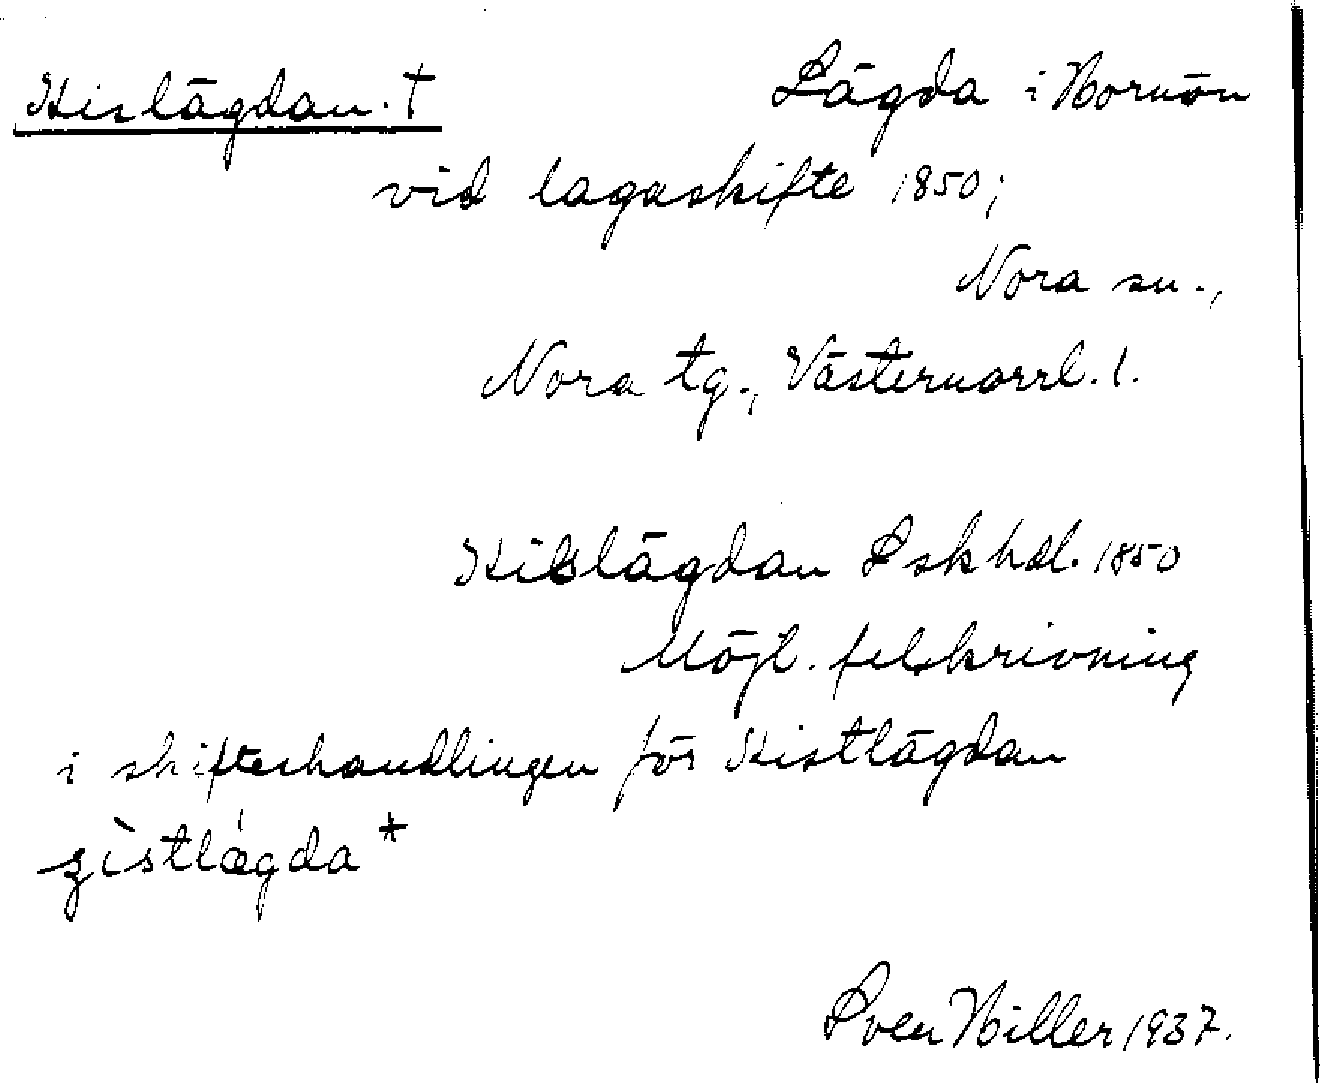 Kislägdan. †
Lägda i Hornön
vid lagaskifte 1850;
Nora sn.,
Nora tg., Västernorrl. l.
Kislägdan Lskhdl. 1850
Möjl. felskrivning
i skifteshandlingen för Kistlägdan
Sven Hiller 1937.